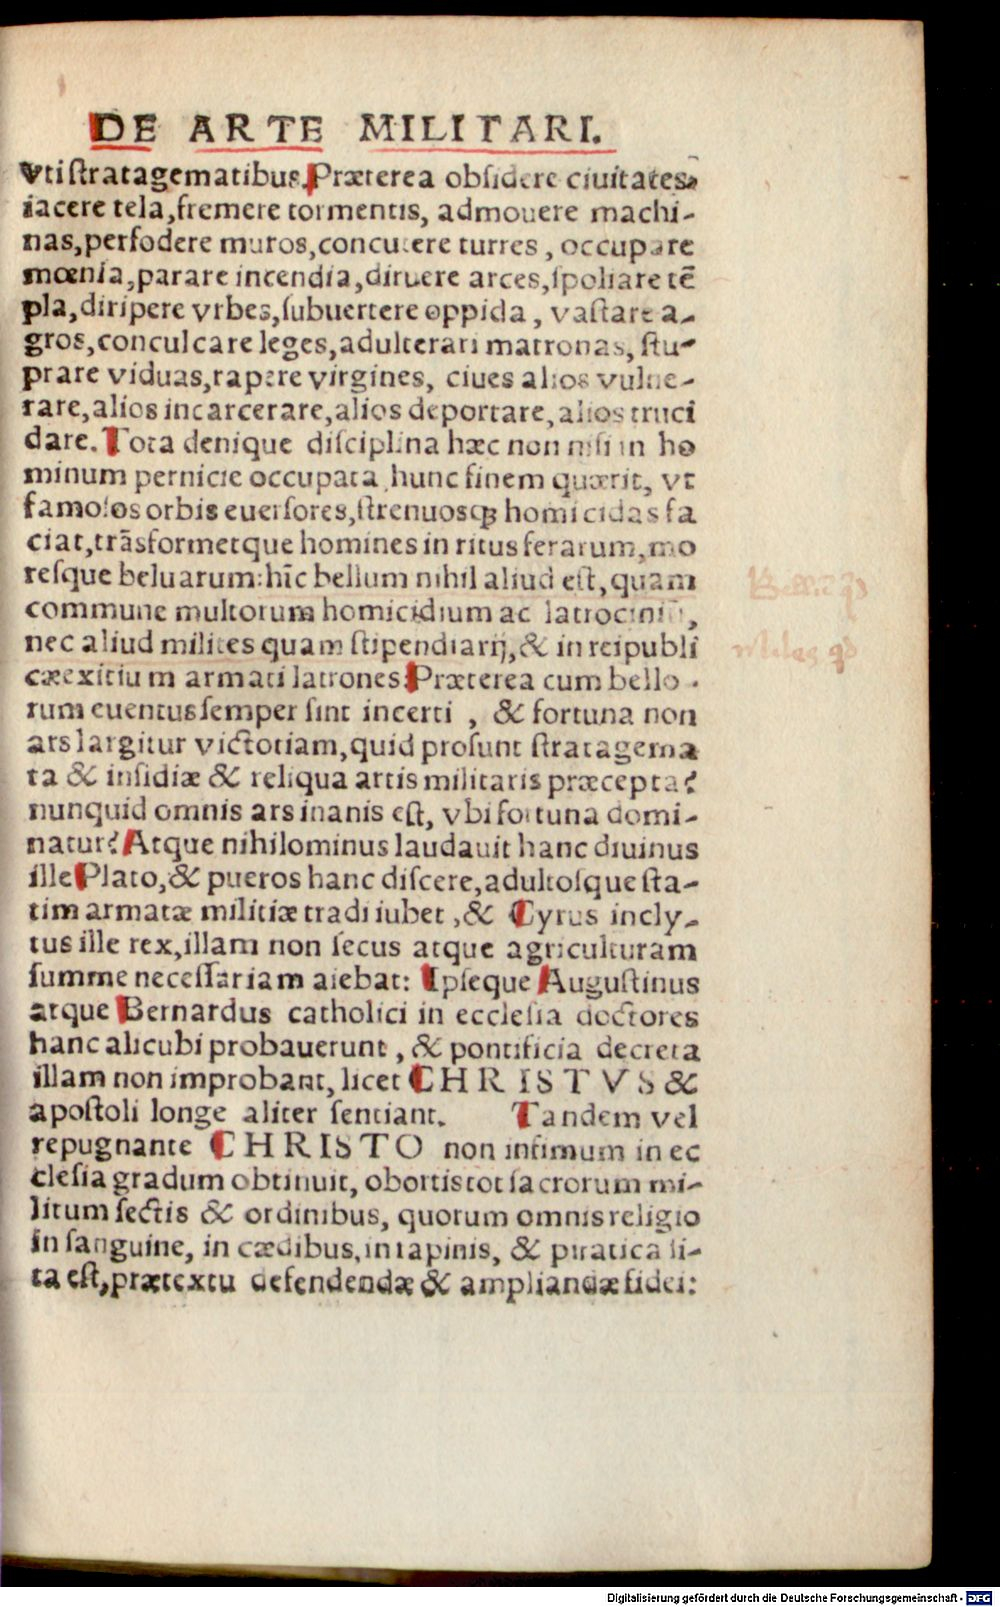 DE ARTE MILITARI.
Vti ſtratagematibus. Præterea obſidere ciuitates,
iacere tela, fremere tormentis, admouere machi-
nas, perfodere muros, concutere turres, occupare
mœnia, parare incendia, diruere arces, ſpoliare tẽ
pla, diripere vrbes, ſubuertere oppida, vaſtare a-
gros, conculcare leges, adulterari matronas, ſtu-
prare viduas, rapere virgines, ciues alios vulne-
rare, alios incarcerare, alios deportare, alios truci
dare. Tota denique diſciplina hæc non niſi in ho
minum pernicie occupata hunc finem quærit, vt
famoſos orbis euerſores, ſtrenuosqꝫ homicidas fa
ciat, trãsformetque homines in ritus ferarum, mo
reſque beluarum: hĩc bellum nihil aliud eſt, quam
commune multorum homicidium ac latrociniũ,
nec aliud milites quam ſtipendiarij, & in reipubli
cæ exitium armati latrones. Præterea cum bello-
rum euentus ſemper ſint incerti, & fortuna non
ars largitur victotiam, quid proſunt ſtratagema
ta & inſidiæ & reliqua artis militaris præcepta?
nunquid omnis ars inanis eſt, vbi fortuna domi-
natur? Atque nihilominus laudauit hanc diuinus
ille Plato, & pueros hanc diſcere, adultoſque ſta-
tim armatæ militiæ tradi iubet, & Cyrus incly-
tus ille rex, illam non ſecus atque agriculturam
ſumme neceſſariam aiebat: Ipſeque Auguſtinus
atque Bernardus catholici in eccleſia doctores
hanc alicubi probauerunt, & pontificia decreta
illam non improbant, licet CHRISTVS &
apoſtoli longe aliter ſentiant. Tandem vel
repugnante CHRISTO non infimum in ec
cleſia gradum obtinuit, obortis tot ſacrorum mi-
litum ſectis & ordinibus, quorum omnis religio
in ſanguine, in cædibus, in rapinis, & piratica ſi-
ta eſt, prætextu defendendæ & ampliandæ fidei:
Miles
Digitalisierung gefördert durch die Deutsche Forschungsgemeinschaft - DFG